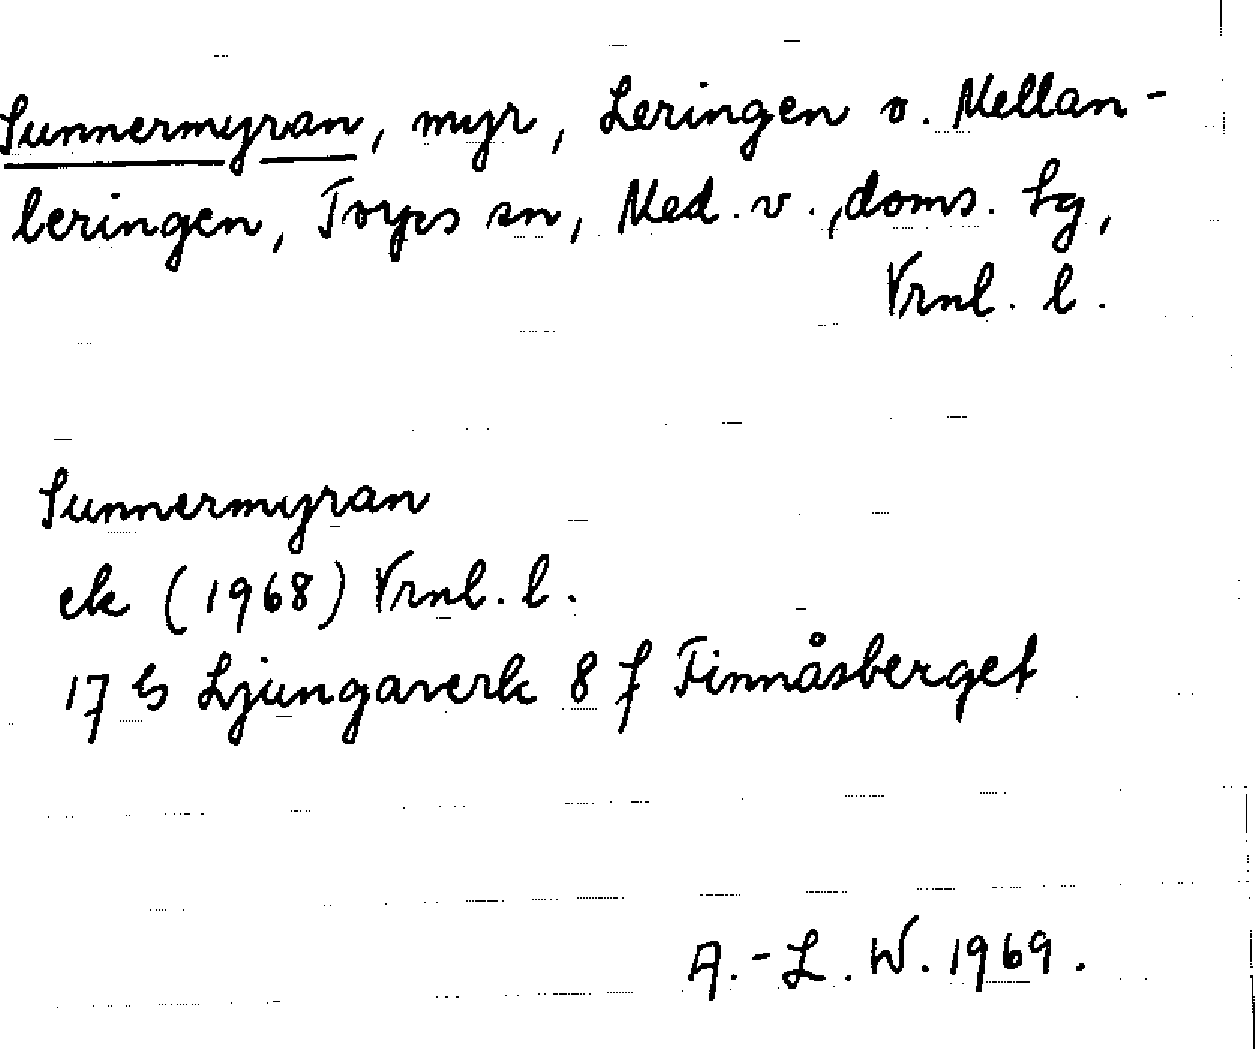 Sunnermyran, myr, Leringen o. Mellan-
leringen, Torps sn, Med. v., doms. hg,
Vrnl. l.
Sunnermyran
ek (1968) Vrnl. l.
17 G Ljungaverk 8 f Finnåsberget
A.-L. W. 1969.